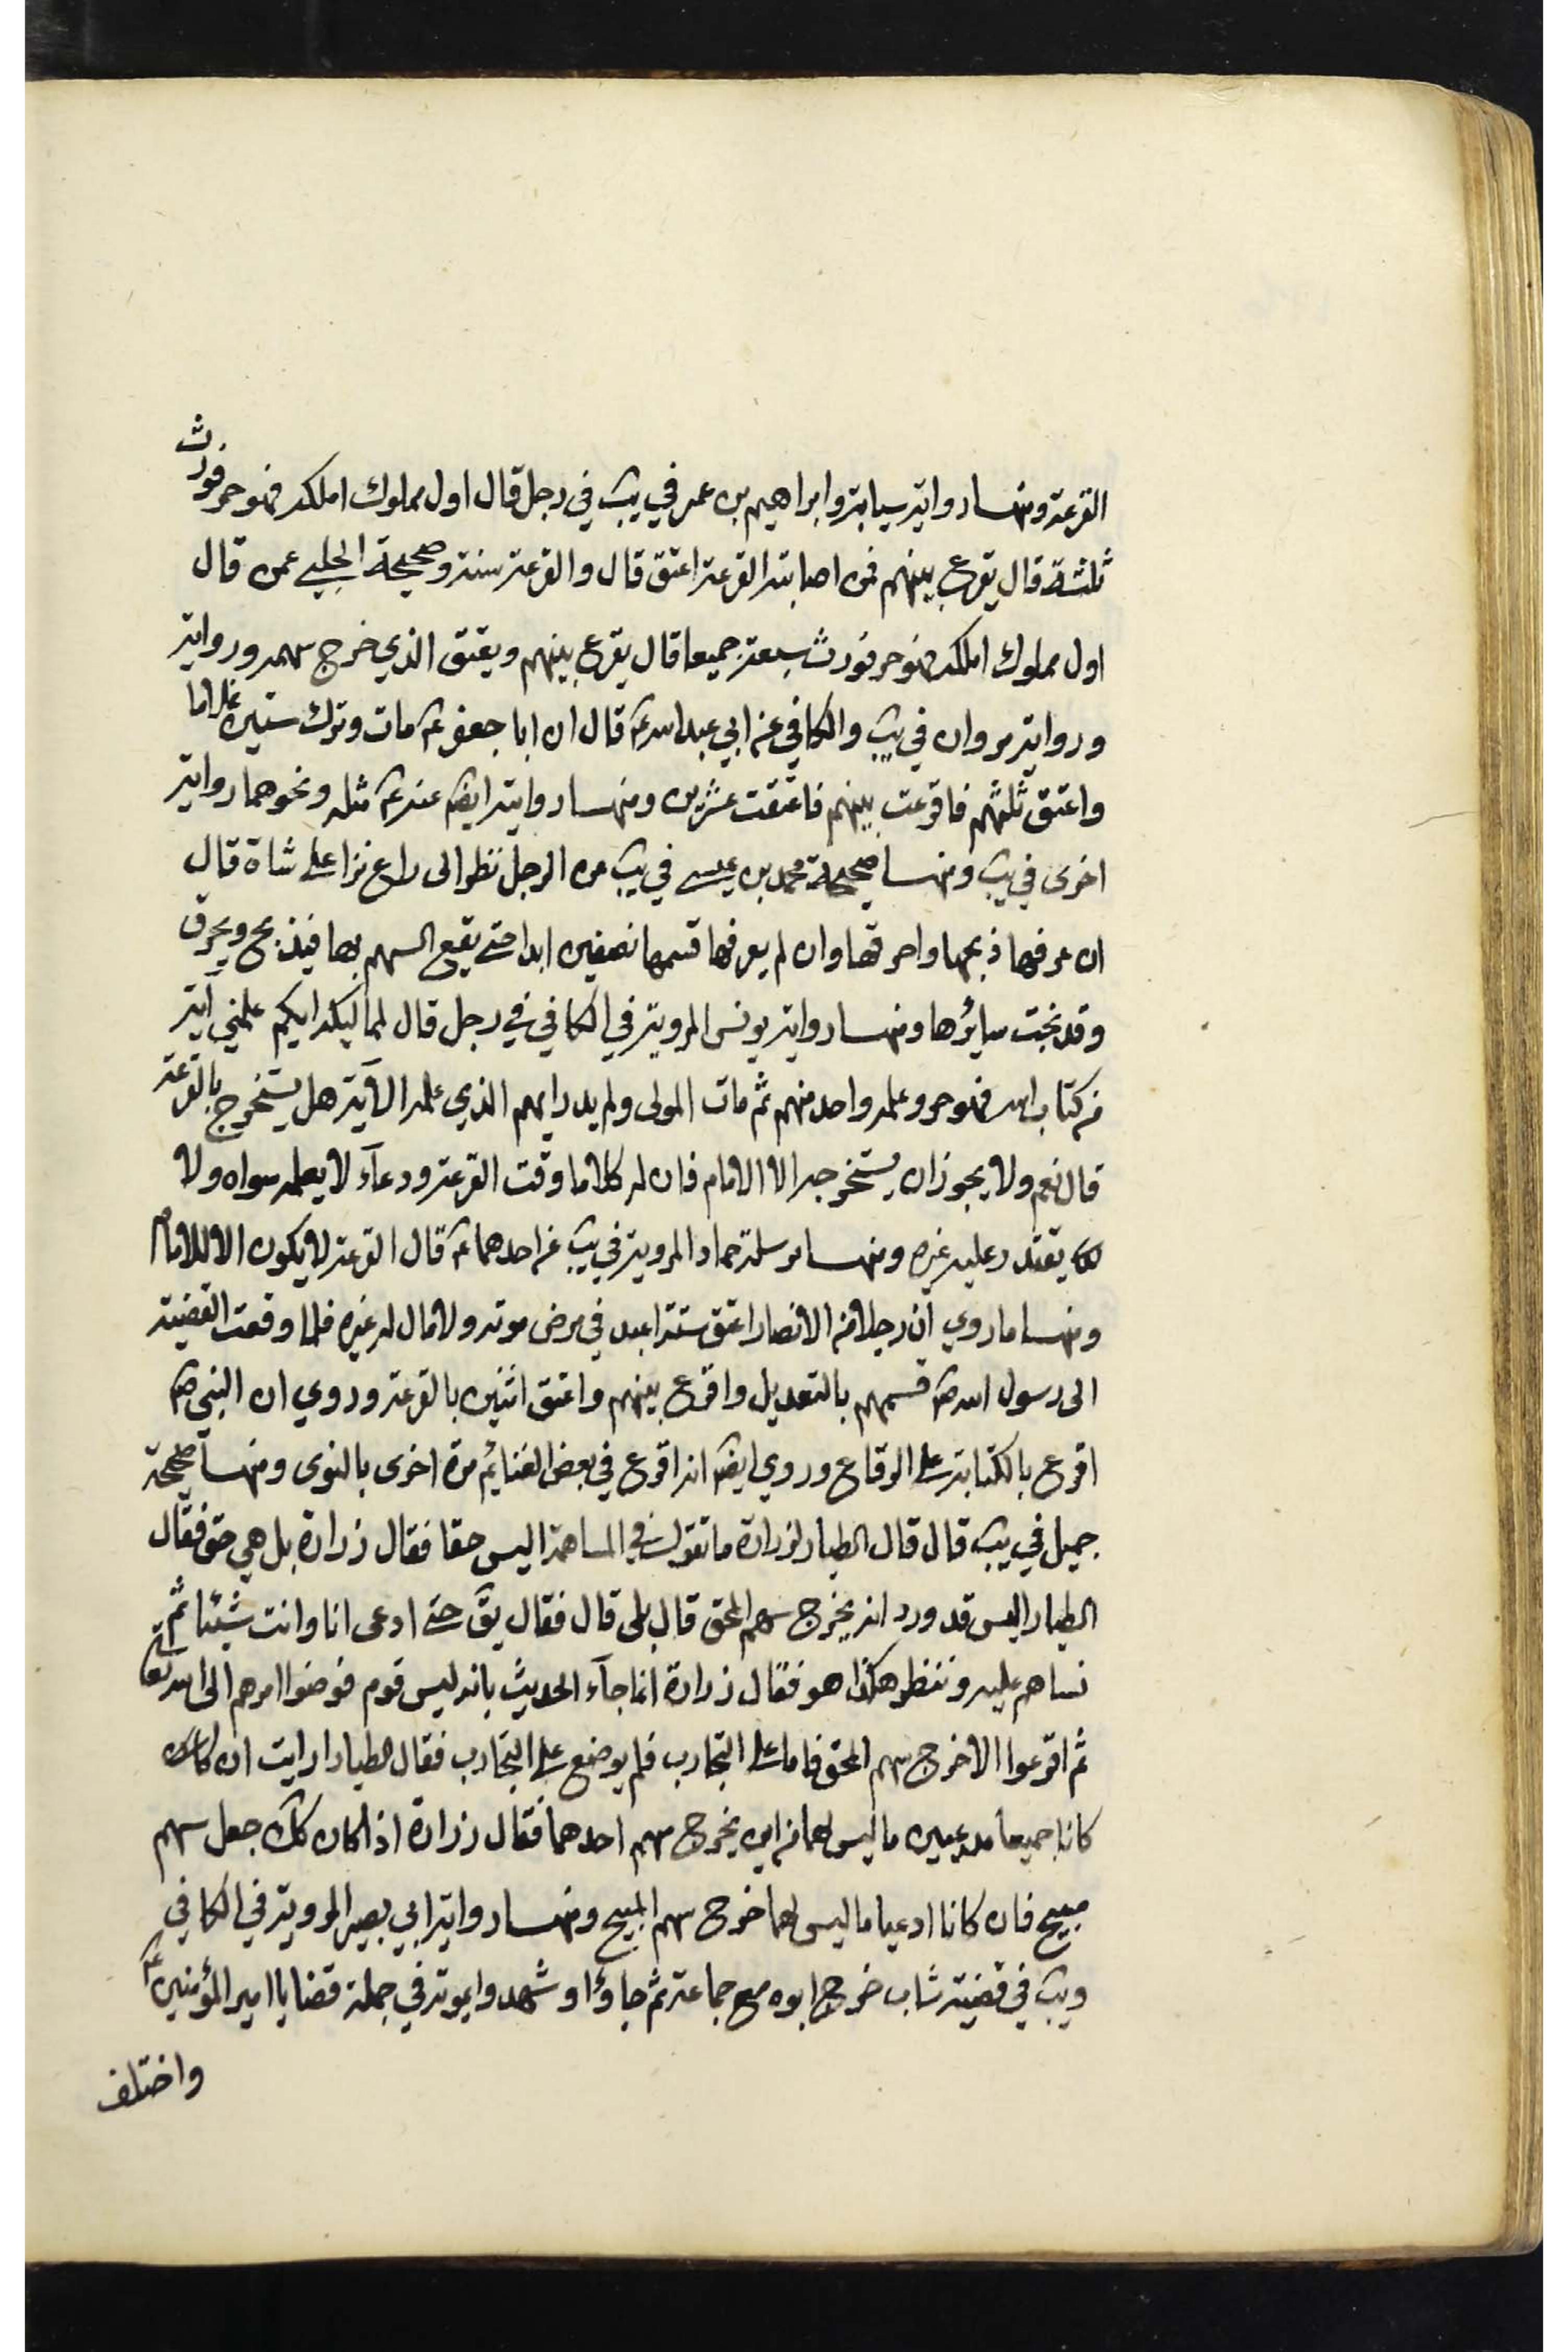 القرعة ومنها رواية سيابة وابراهيم بن عمر في يب في رجل قال اول مملوك املكه فهو حر فورث
ثلثة قال يقرع بينهم فمن اصابته القرعة اعتق قال والقرعة سنة وصحيحة الحلبي عمن قال
اول مملوك املكه فهو حر فورث سبعة جميعا قال يقرع بينهم ويعتق الذي خرج سهمه ورواية
ورواية مروان في يب والكافي عن ابي عبد الله ع قال ان ابا جعفر ع مات وترك ستين غلاما
واعتق ثلثهم فاقرعت بينهم فاعتقت عشرين ومنها روايته ايض عنه ع مثله ونحوهما رواية
اخرى في يب ومنها صحيحة محمد بن عيسى في يب من الرجل نظر الى راع نزا على شاة قال
ان عرفها ذبحها واحرقها وان لم يعرفها قسمها نصفين ابدا حتى يقع السهم بها فيذبح ويحرق
وقد نجت سايرها ومنها رواية يونس المروية في الكافي في رجل قال لمماليكه ايكم علمني آية
من كتاب الله فهو حر وعلمه واحد منهم ثم مات المولى ولم يدر ايهم الذي علمه الآية هل يستخرج بالقرعة
قال نعم ولا يجوز ان يستخرجه الا الامام فان له كلاما وقت القرعة ودعآء لا يعلمه سواه ولا
يقتدر عليه غيره ومنها مرسلة حماد المروية في يب عن احدهما ع قال القرعة لا يكون الا للامام
ومنها ما روي ان رجلا من الانصار اعتق ستة اعبد في مرض موته ولا مال له غيره فلما وقعت القضية
الى رسول الله ص قسمهم بالتعديل واقرع بينهم واعتق اثنين بالقرعة وروي ان النبي ص
اقرع بالكتابة على الرقاع وروي ايض انه اقرع في بعض الغنايم مرة اخرى بالنوى ومنها صحيحة
جميل في يب قال قال الطيار لزرارة ما تقول في المساهمة اليس حقا فقال زرارة بل هي حق فقال
الطيار اليس قد ورد انه يخرج سهم المحق قال بلى قال فقال يق حتى ادعى انا وانت شيئا ثم
نساهم عليه وننظر هكذا هو فقال زرارة انما جآء الحديث بانه ليس قوم فوضوا امرهم الى الله تعالى
ثم اقرعوا الا خرج سهم المحق فاما على التجارب فلم يوضع على التجارب فقال الطيار ارايت ان
كانا جميعا مدعيين ما ليس لهما من اين يخرج سهم احدهما فقال زرارة اذا كان كك جعل سهم
مبيح فان كانا ادعيا ما ليس لهما خرج سهم المبيح ومنها رواية ابي بصير المروية في الكافي
ويب في قضية شاب خرج ابوه مع جماعة ثم جاؤا وشهدوا بموته في جملة قضايا امير المؤمنين ع
واختلف